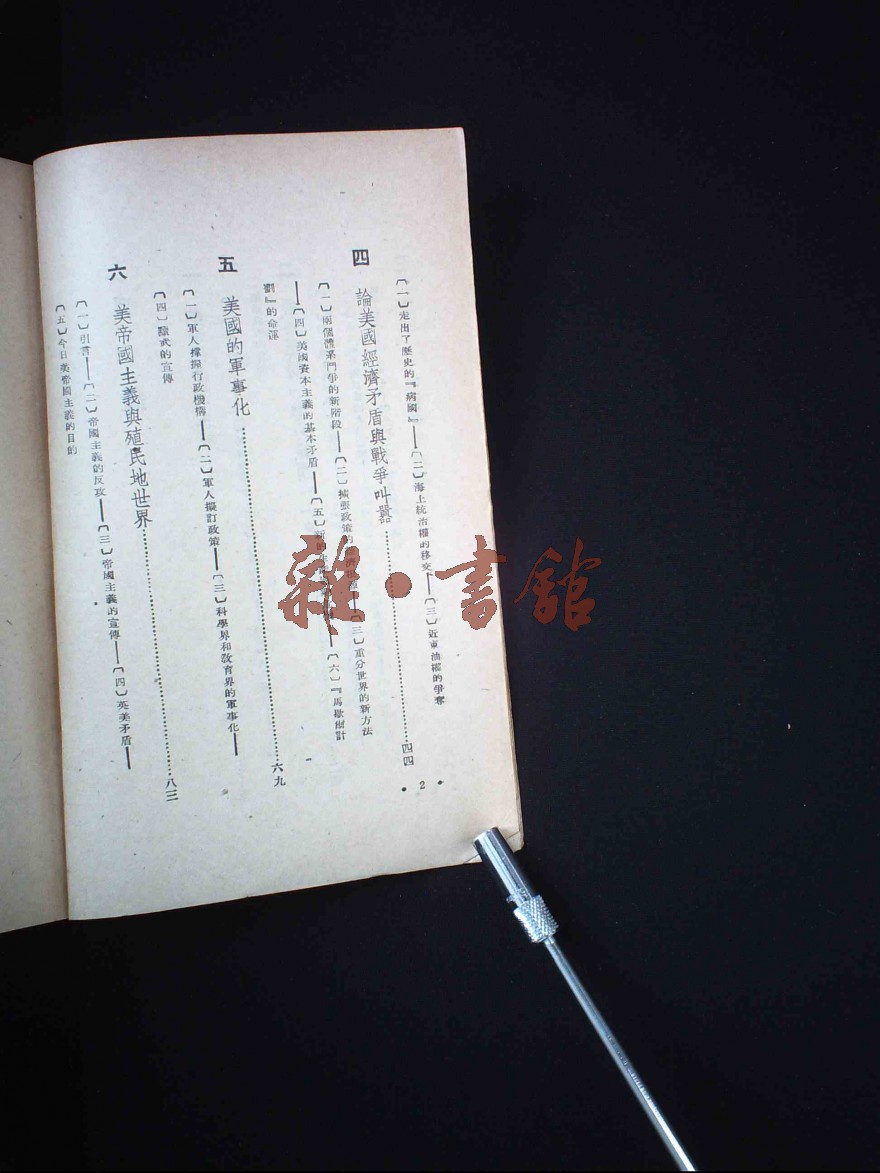 〔一〕走出了歷史的『病國』——〔二〕海上統治權的移交——〔三〕近東油權的爭奪
四 論美國經濟矛盾與戰爭叫囂……四四
〔一〕兩個體系鬥爭的新階段——〔二〕擴張政策的——〔三〕重分世界的新方法
——〔四〕美國資本主義的基本矛盾——〔五〕新的——〔六〕『馬歇爾計
劃』的命運
五 美國的軍事化……六九
〔一〕軍人攫握行政機構——〔二〕軍人擬訂政策——〔三〕科學界和教育界的軍事化——
〔四〕黷武的宣傳
六 美帝國主義與殖民地世界……八三
〔一〕引言——〔二〕帝國主義的反攻——〔三〕帝國主義的宣傳——〔四〕英美矛盾——
〔五〕今日美帝國主義的目的
• 2 •
雜·書館